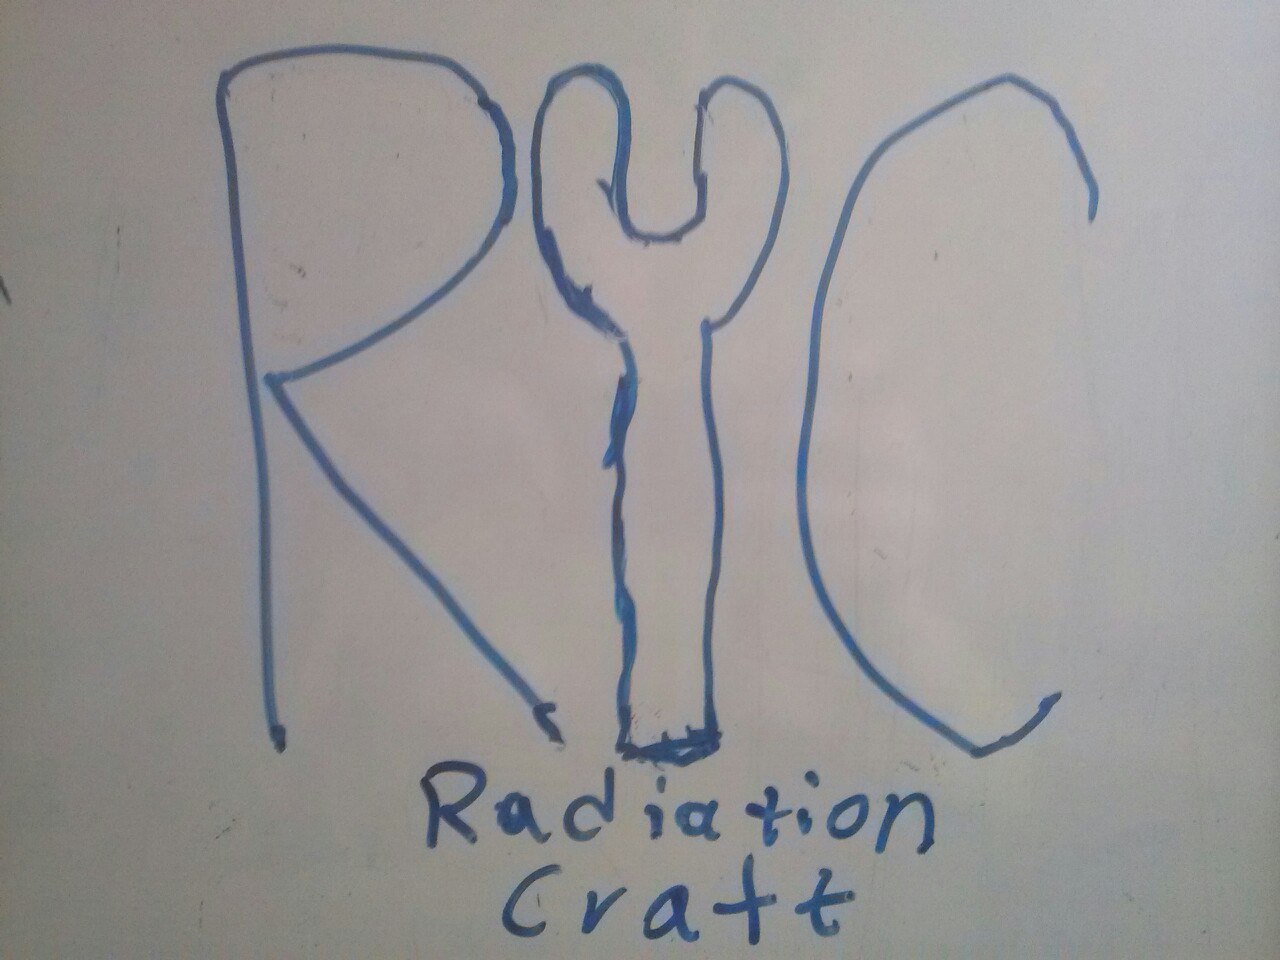 RYC
Radiation
Craft